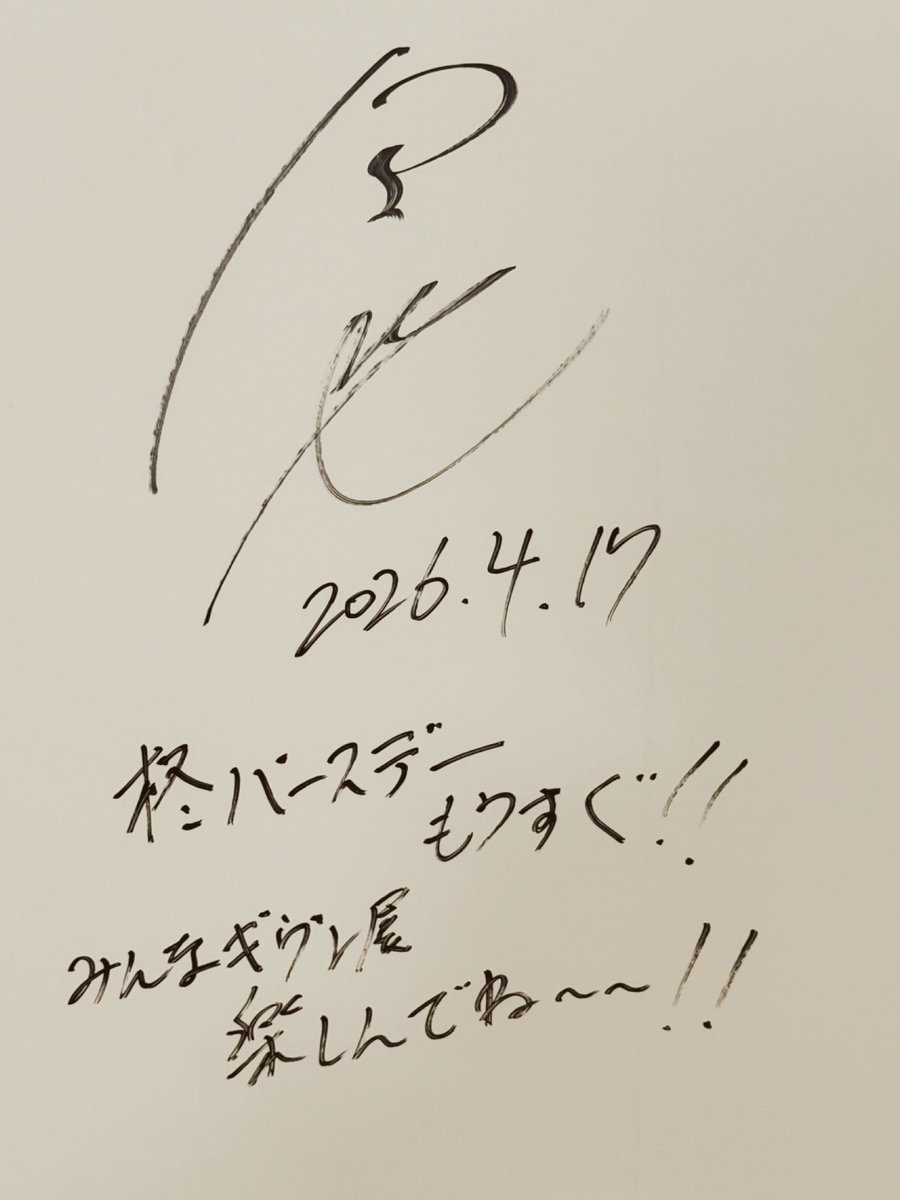 2026.4.17
柊バースデー
もうすぐ!!
みんなギヴン展
楽しんでね〜〜!!